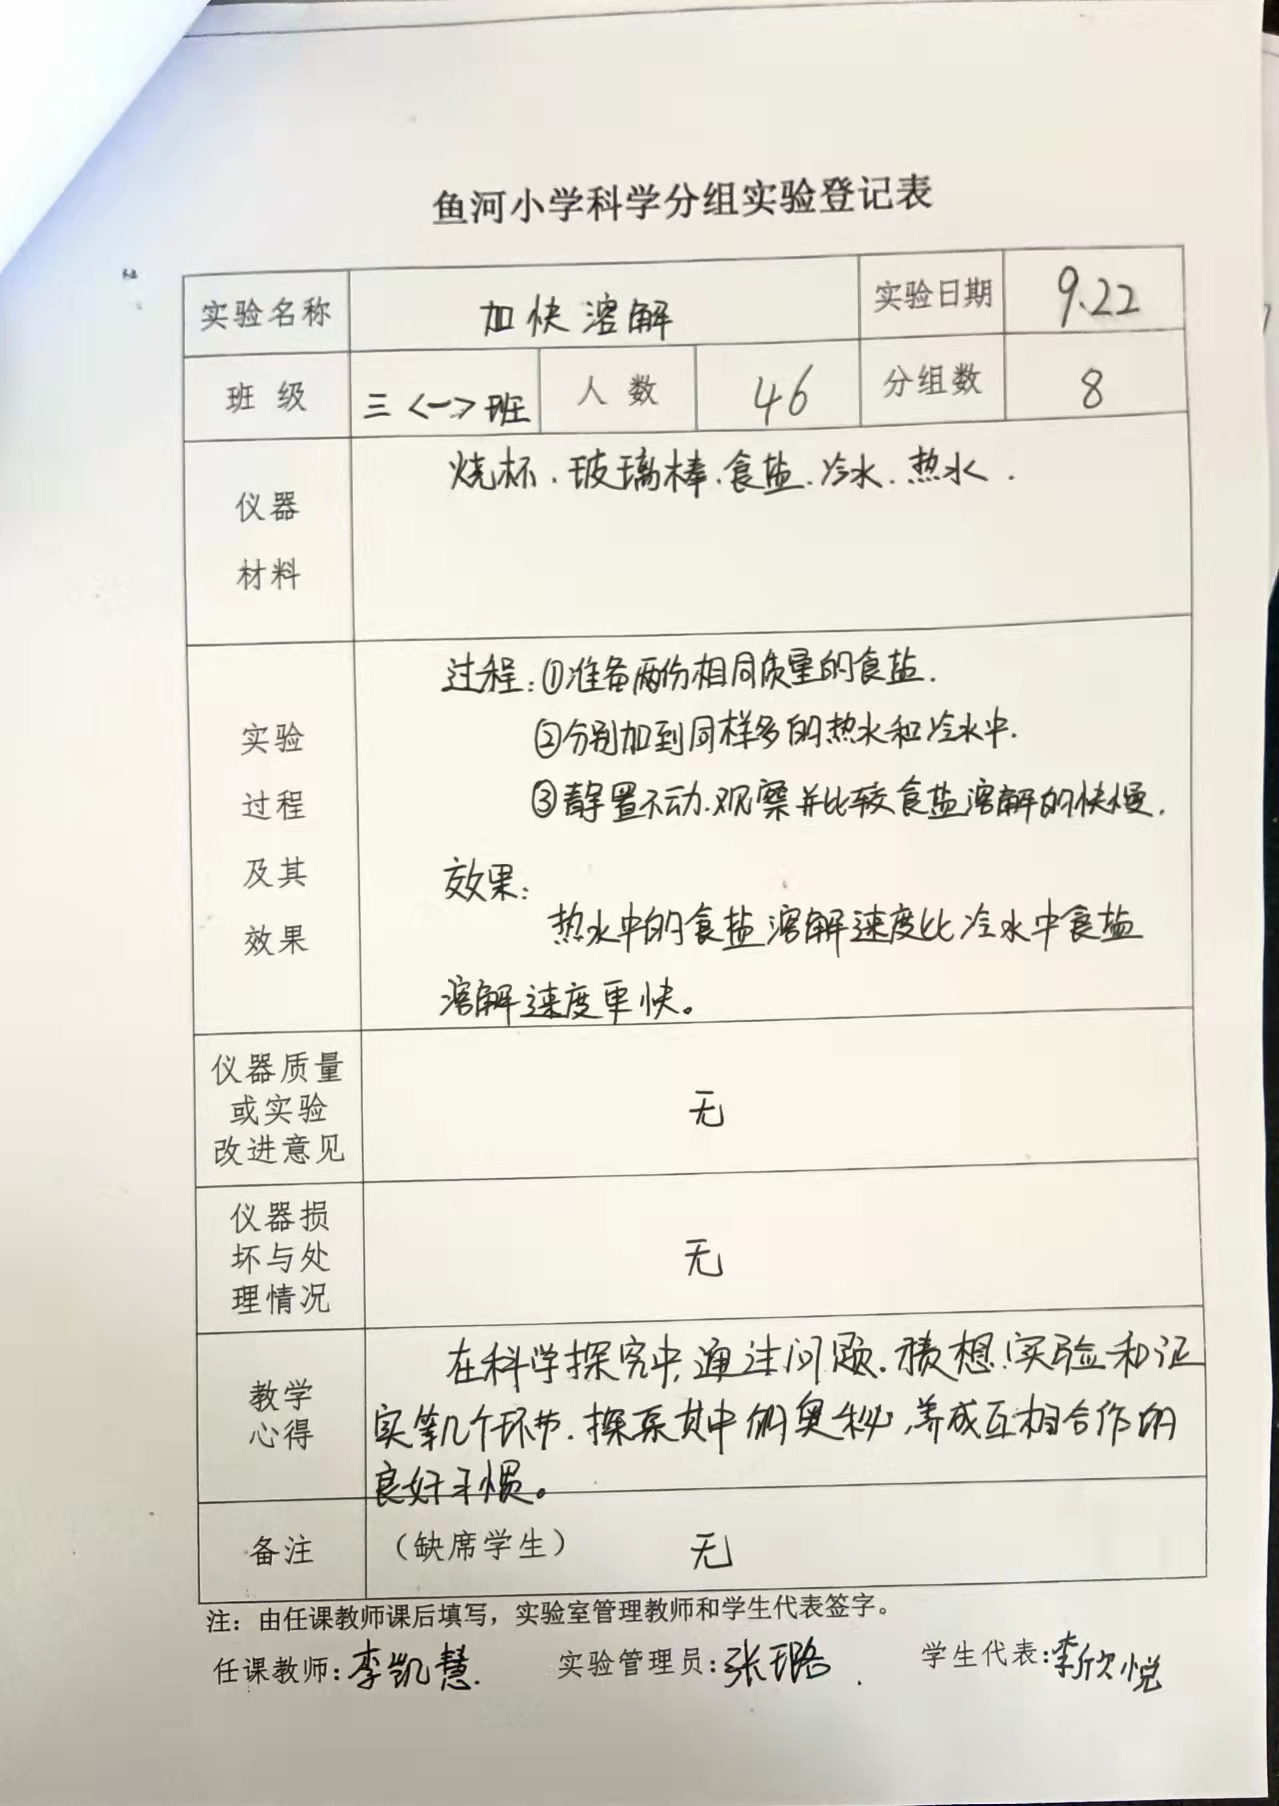 鱼河小学科学分组实验登记表
实验名称 加快溶解 实验日期 9.22
班级 三<一>班 人数 46 分组数 8
仪器
材料
烧杯、玻璃棒、食盐、冷水、热水.
实验
过程
及其
效果
过程:①准备两份相同质量的食盐.
②分别加到同样多的热水和冷水中.
③静置不动.观察并比较食盐溶解的快慢.
效果:
热水中的食盐溶解速度比冷水中食盐
溶解速度更快。
仪器质量
或实验
改进意见
无
仪器损
坏与处
理情况
无
教学
心得
在科学探究中,通过问题.猜想.实验和证
实等几个环节.探索其中的奥秘,养成互相合作的
良好习惯。
备注 (缺席学生) 无
注：由任课教师课后填写，实验室管理教师和学生代表签字。
任课教师:李凯慧. 实验管理员:张璐. 学生代表:李欣悦